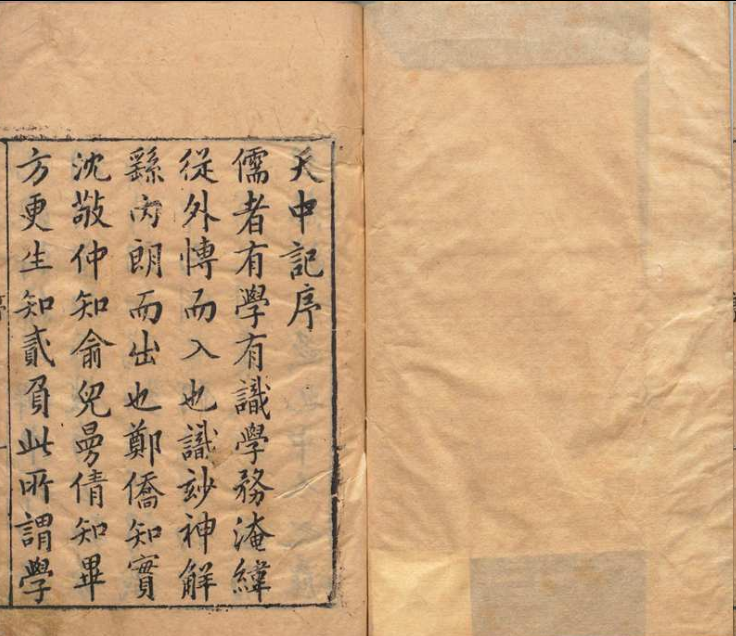 天中記序
儒者有學有識學務淹緯
從外愽而入也識玅神解
繇內朗而出也鄭僑知實
沈敬仲知俞兒曼倩知畢
方更生知貳負此所謂學